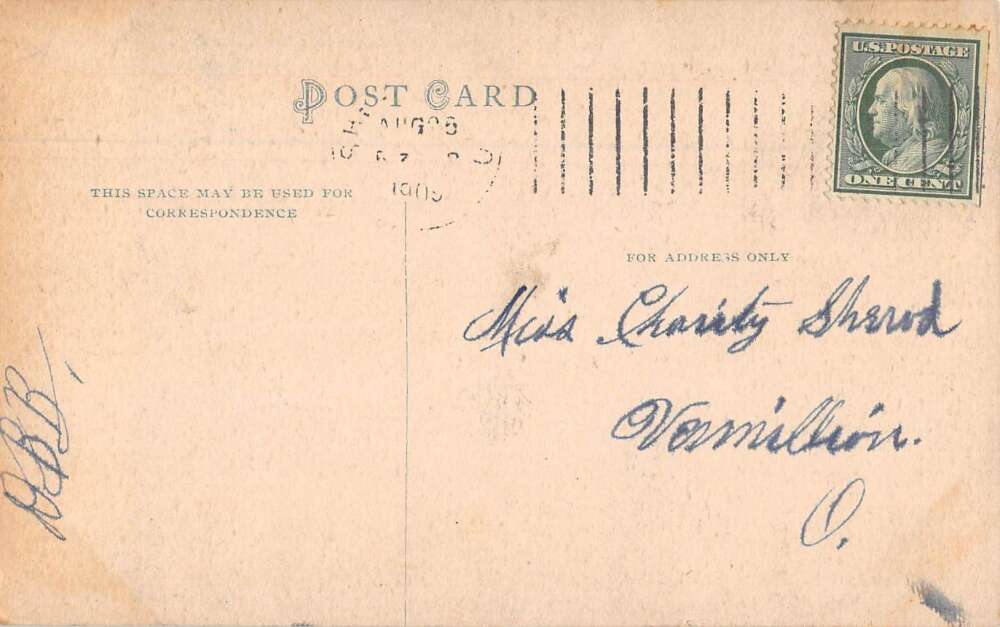 POST CARD
U.S. POSTAGE
ONE CENT
THIS SPACE MAY BE USED FOR
CORRESPONDENCE
FOR ADDRESS ONLY
Miss Charity Sherod
Vermillion.
O.